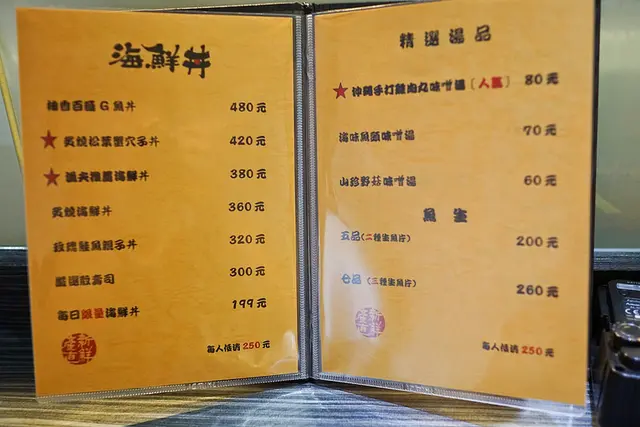 海鮮丼
柚香百匯G魚丼 480元
★炙燒松葉蟹穴子丼 420元
★漁夫推薦海鮮丼 380元
炙燒海鮮丼 360元
玫瑰鮭魚親子丼 320元
嚴選散壽司 300元
每日限量海鮮丼 199元
每人低消250元
精選湯品
★沖繩手打鮭肉丸味噌湯(人氣) 80元
海味魚頭味噌湯 70元
山珍野菇味噌湯 60元
魚生
五品(二種生魚片) 200元
七品(三種生魚片) 260元
每人低消250元